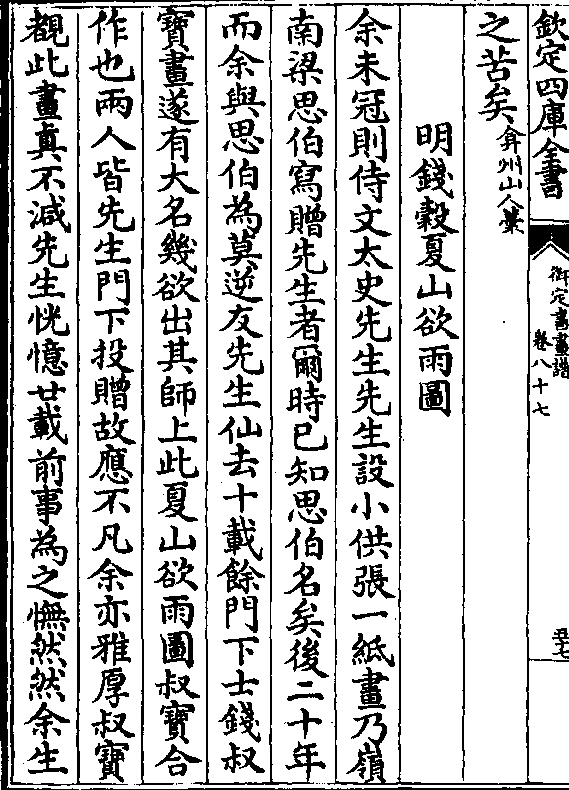 欽定四庫全書
御定書畫譜
卷八十七
五十七
之苦矣弇州山人藁
明錢穀夏山欲雨圖
余未冠則侍文太史先生先生設小供張一紙畫乃嶺
南梁思伯寫贈先生者爾時已知思伯名矣後二十年
而余與思伯為莫逆友先生仙去十載餘門下士錢叔
寶畫遂有大名幾欲出其師上此夏山欲雨圖叔寶合
作也兩人皆先生門下投贈故應不凡余亦雅厚叔寶
覩此畫真不減先生恍憶廿載前事為之憮然然余生